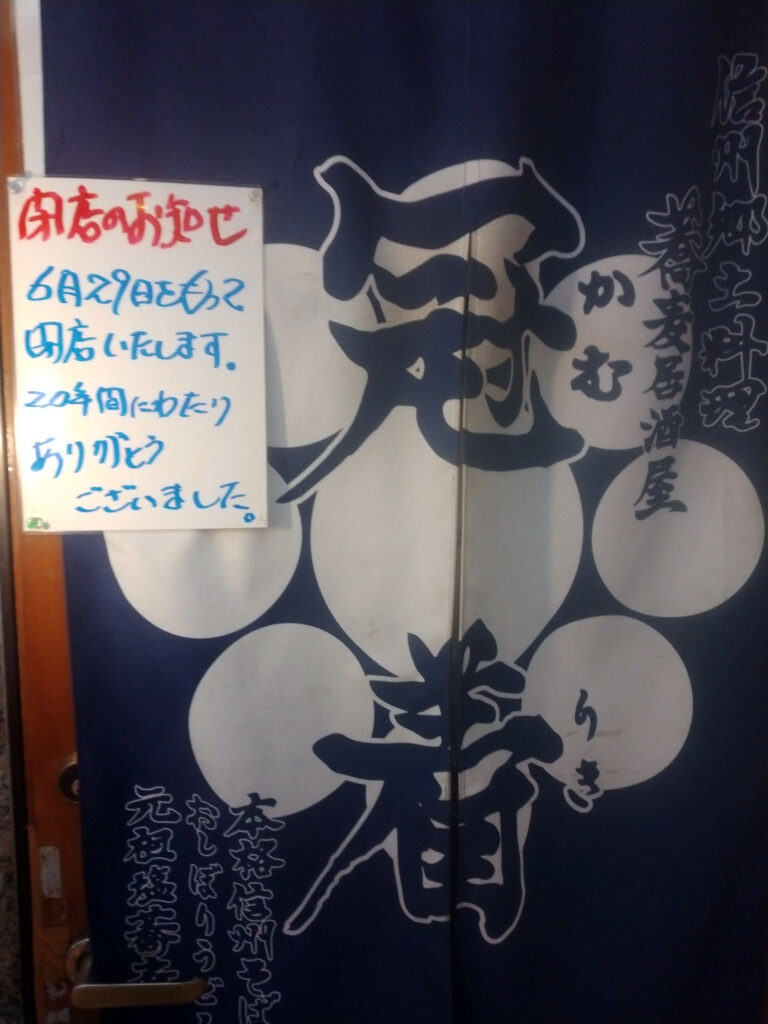 閉店のお知せ
6月29日をもって
閉店いたします。
20年間にわたり
ありがとう
ございました。
信州郷土料理
蕎麦居酒屋
冠着
かむりき
本格信州そば
おしぼりうど
元祖塩蕎麦